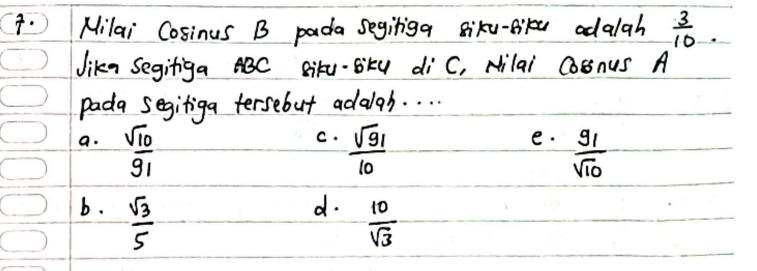 7. Nilai Cosinus B pada segitiga siku-siku adalah 3/10.
Jika segitiga ABC siku-siku di C, Nilai Cosinus A
pada segitiga tersebut adalah....
a. √10/91 c. √91/10 e. 91/√10
b. √3/5 d. 10/√3